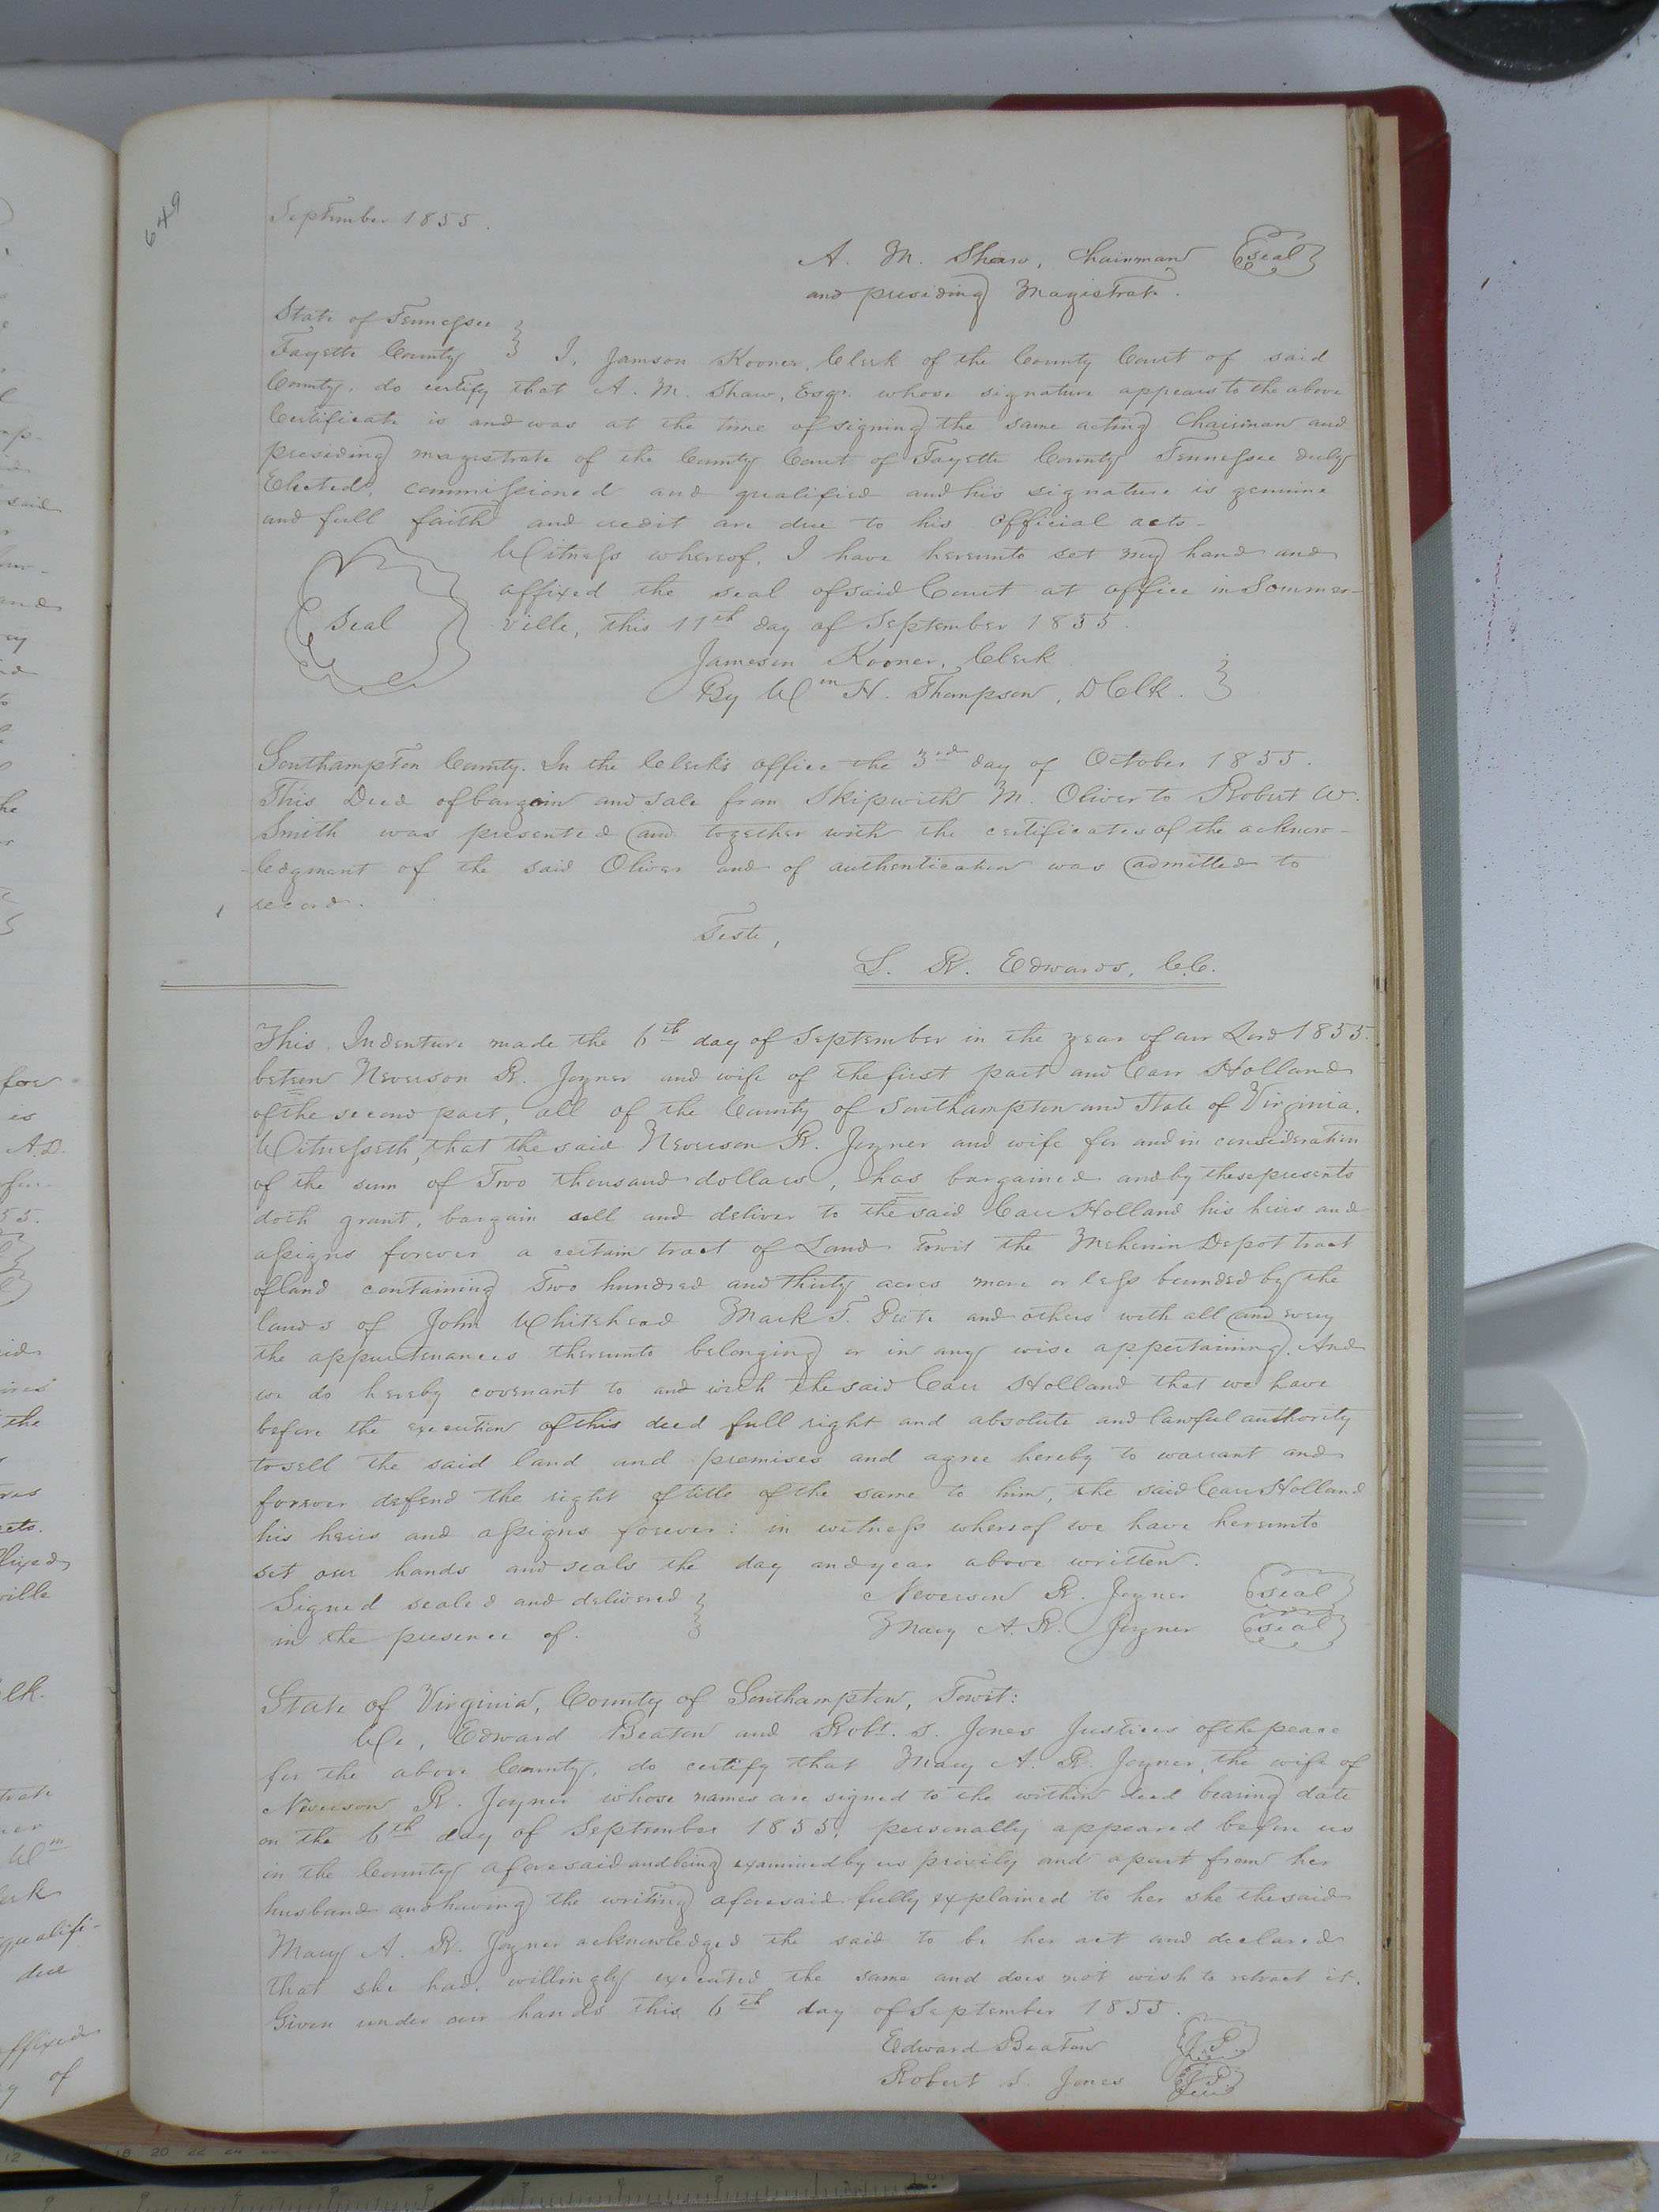 649
September 1855.
A. M. Shaw, Chairman Seal
and presiding Magistrate.
State of Tennessee
Fayette County } I, Jamson Kooner, Clerk of the County Court of said
County, do certify that A. M. Shaw, Esqr. whose signature appears to the above
Certificate is and was at the time of signing the same acting Chairman and
preseding magistrate of the County Court of Fayette County Tennessee duly
Elected, commissioned and qualified and his signature is genuine
and full faith and credit are due to his official acts-
Witness whereof, I have hereunto set my hand and
affixed the seal of said Court at office in Sommer-
Seal
ville, this 11th day of September 1855.
Jameson Kooner, Clerk
By Wm H. Thompson, D Clk. }
Southampton County. In the Clerk's office the 3rd day of October 1855.
This Deed of bargain and sale from Skipwith M. Oliver to Robert W.
Smith was presented and together with the certificates of the acknow-
ledgment of the said Oliver and of authentication was admitted to
record.
Teste,
L. R. Edwards, C.C.
This Indenture made the 6th day of September in the year of our Lord 1855
between Neverson R. Joyner and wife of the first part and Carr Holland
of the second part, all of the County of Southampton and State of Virginia.
Witnesseth, that the said Neverson R. Joyner and wife for and in consideration
of the sum of Two thousand dollars, has bargained and by these presents
doth grant, bargain sell and deliver to the said Carr Holland his heirs and
assigns forever a certain tract of Land Towit the Meherrin Depot tract
of land containing Two hundred and thirty acres more or less bounded by the
lands of John Whitehead Mark T. and others with all and every
the appurtenances thereunto belonging or in any wise appertaining. And
we do hereby covenant to and with the said Carr Holland that we have
before the execution of this deed full right and absolute and lawful authority
to sell the said land and premises and agree hereby to warrant and
forever defend the right of title of the same to him, the said Carr Holland
his heirs and assigns forever: in witness whereof we have hereunto
set our hands and seals the day and year above written.
Signed sealed and delivered } Neverson R. Joyner Seal
in the presence of. Mary A. R. Joyner Seal
State of Virginia, County of Southampton, Towit:
We, Edward Beaton and Robt. S. Jones Justices of the peace
for the above County, do certify that Mary A. R. Joyner, the wife of
Neverson R. Joyner whose names are signed to the within deed bearing date
on the 6th day of September 1855, personally appeared before us
in the County aforesaid and being examined by us privily and apart from her
husband and having the writing aforesaid fully explained to her she the said
Mary A. R. Joyner acknowledged the said to be her act and declared
that she had willingly executed the same and does not wish to retract it.
Given under our hands this 6th day of September 1855.
Edward Beaton J.P.
Robert S. Jones J.P.